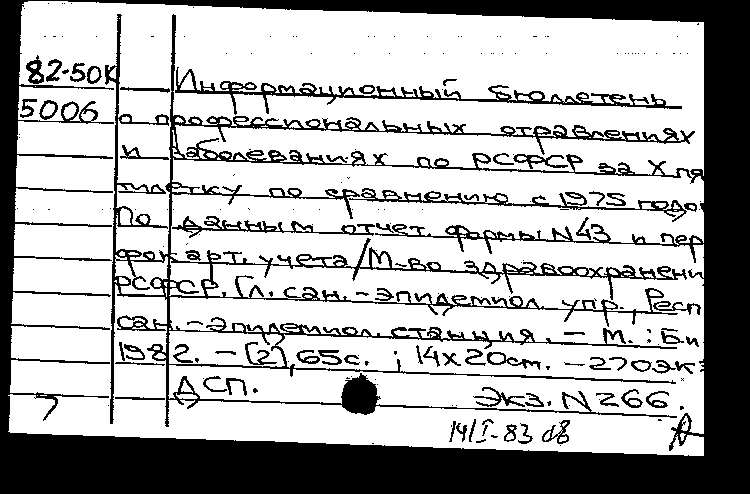 82-50К Информационный бюллетень
5006 о профессиональных отравлениях
и заболеваниях по РСФСР за X пя
тилетку по сравнению с 1975 годо
По данным отчет. формы N43 и пер
фокарт. учета/М-во здравоохранени
РСФСР. Гл. сан.-эпидемиол. упр., Респ
сан.-эпидемиол. станция. – М. : Б.и
1982. – [2], 65с. ; 14х20см. – 270экз
ДСП. Экз. N266.
7 14/I-83